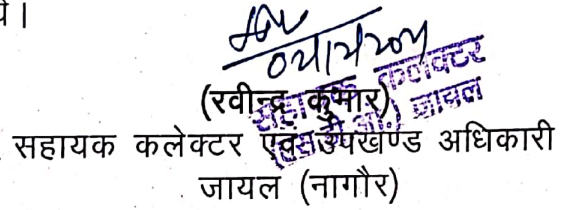 ये।
सहायक कलेक्टर
(एस.डी.ओ.) जायल
(रवीन्द्र कुमार)
सहायक कलेक्टर एवं उपखण्ड अधिकारी
जायल (नागौर)